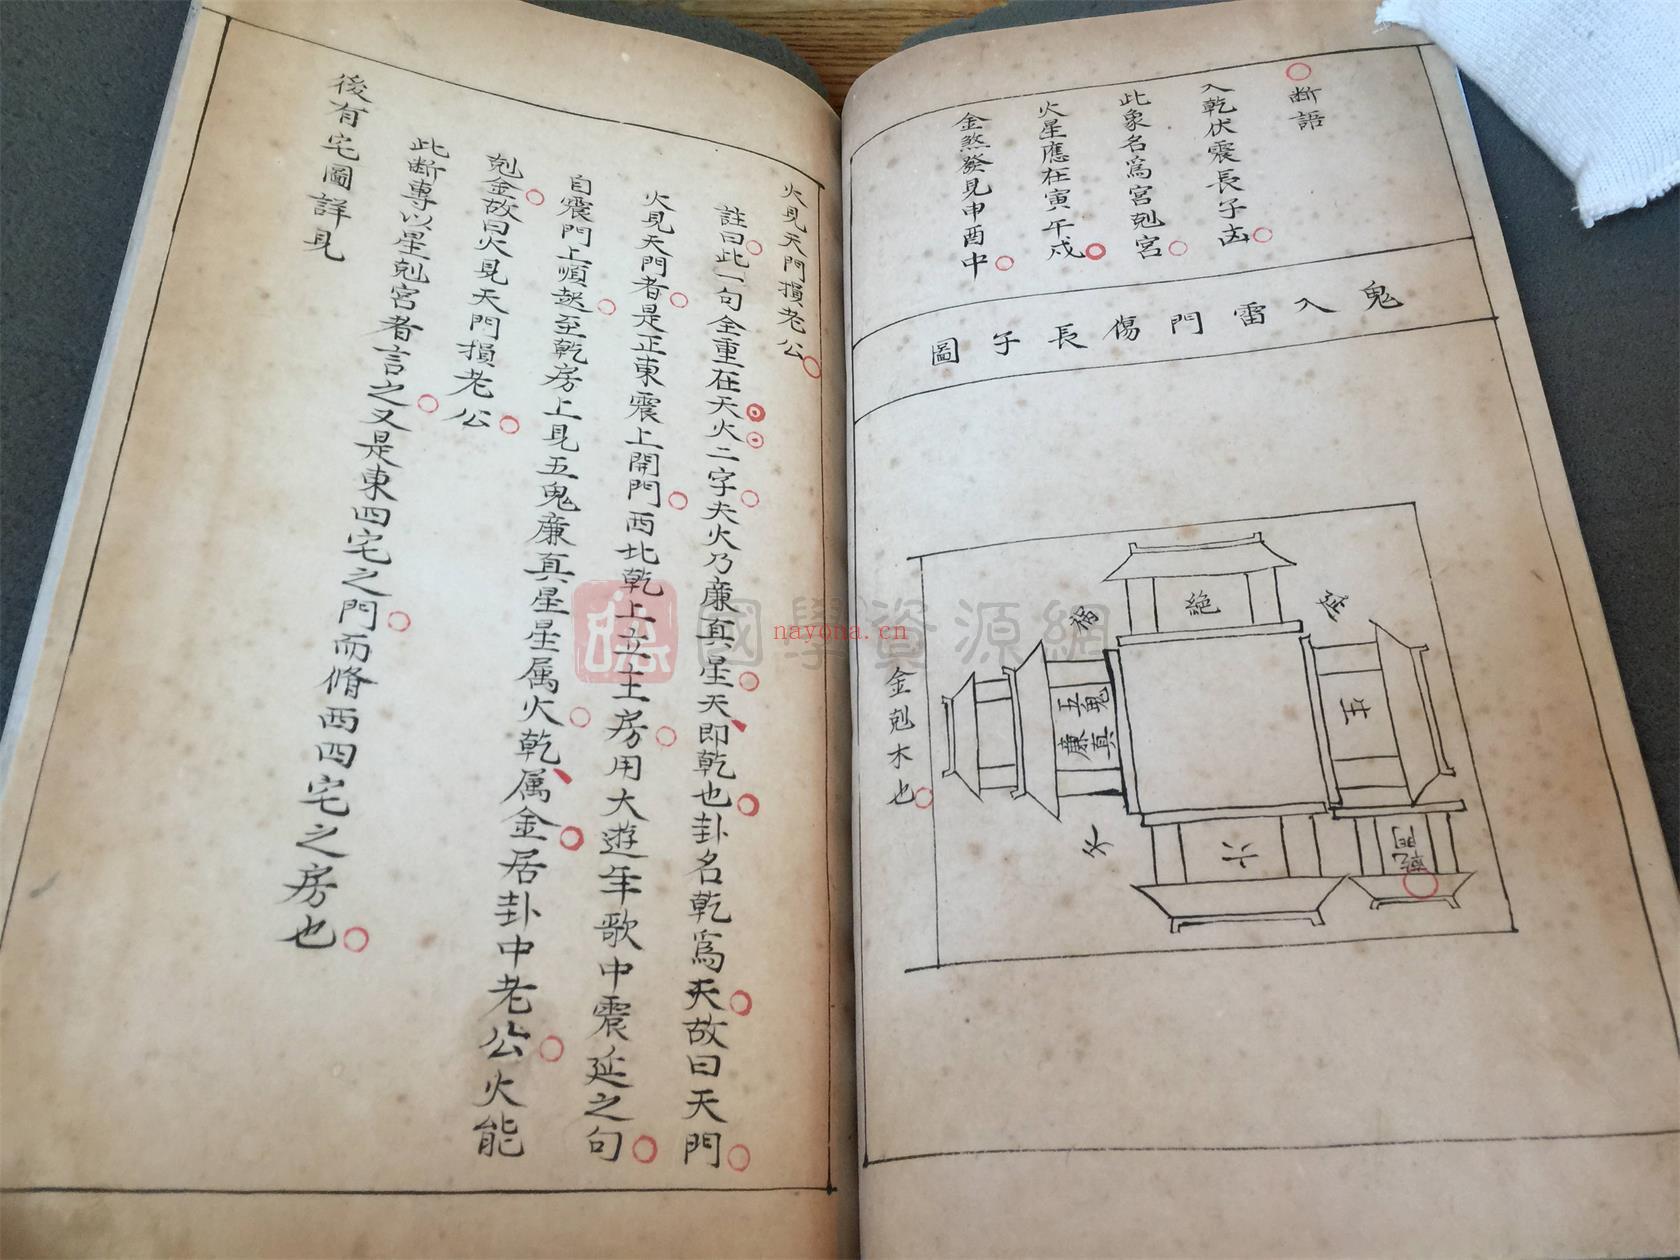 断語
入乾伏震長子凶
此象名爲宮剋宮
火星應在寅午戌
金煞發見申酉中
鬼入雷門傷長子圖
絶
生
五鬼
廉真
六
乾門
金剋木也
火見天門損老公
註曰此一句全重在天火二字夫火乃廉真星天即乾也卦名乾爲天故曰天門
火見天門者是正東震上開門西北乾上立主房用大遊年歌中震延之句
自震門上順起至乾房上見五鬼廉真星星属火乾属金居卦中老公火能
剋金故曰火見天門損老公
此断專以星剋宮者言之又是東四宅之門而脩西四宅之房也
後有宅圖詳見
國學資源網
nayona.cn